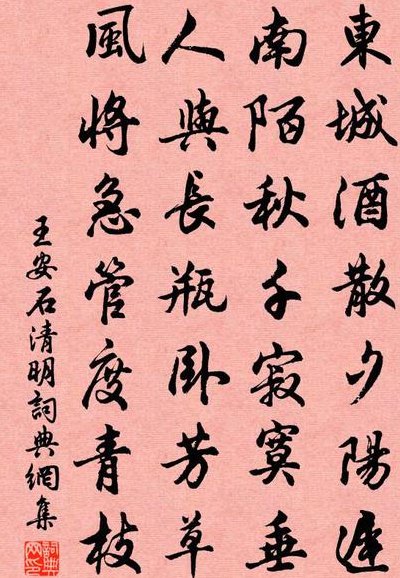 東城酒散夕陽遲
南陌秋千寂寞垂
人與長瓶卧芳草
風將急管度青枝
王安石清明詞典網集
詞典網印